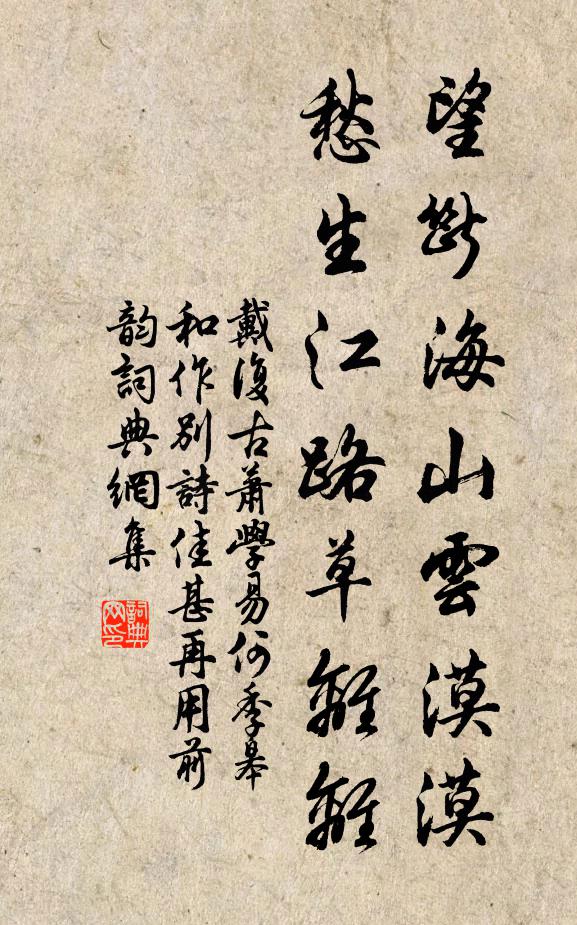 望斷海山雲漠漠
愁生江路草離離
戴復古蕭學易何季皋
和作別詩佳甚再用前
韵詞典網集
詞典
网印